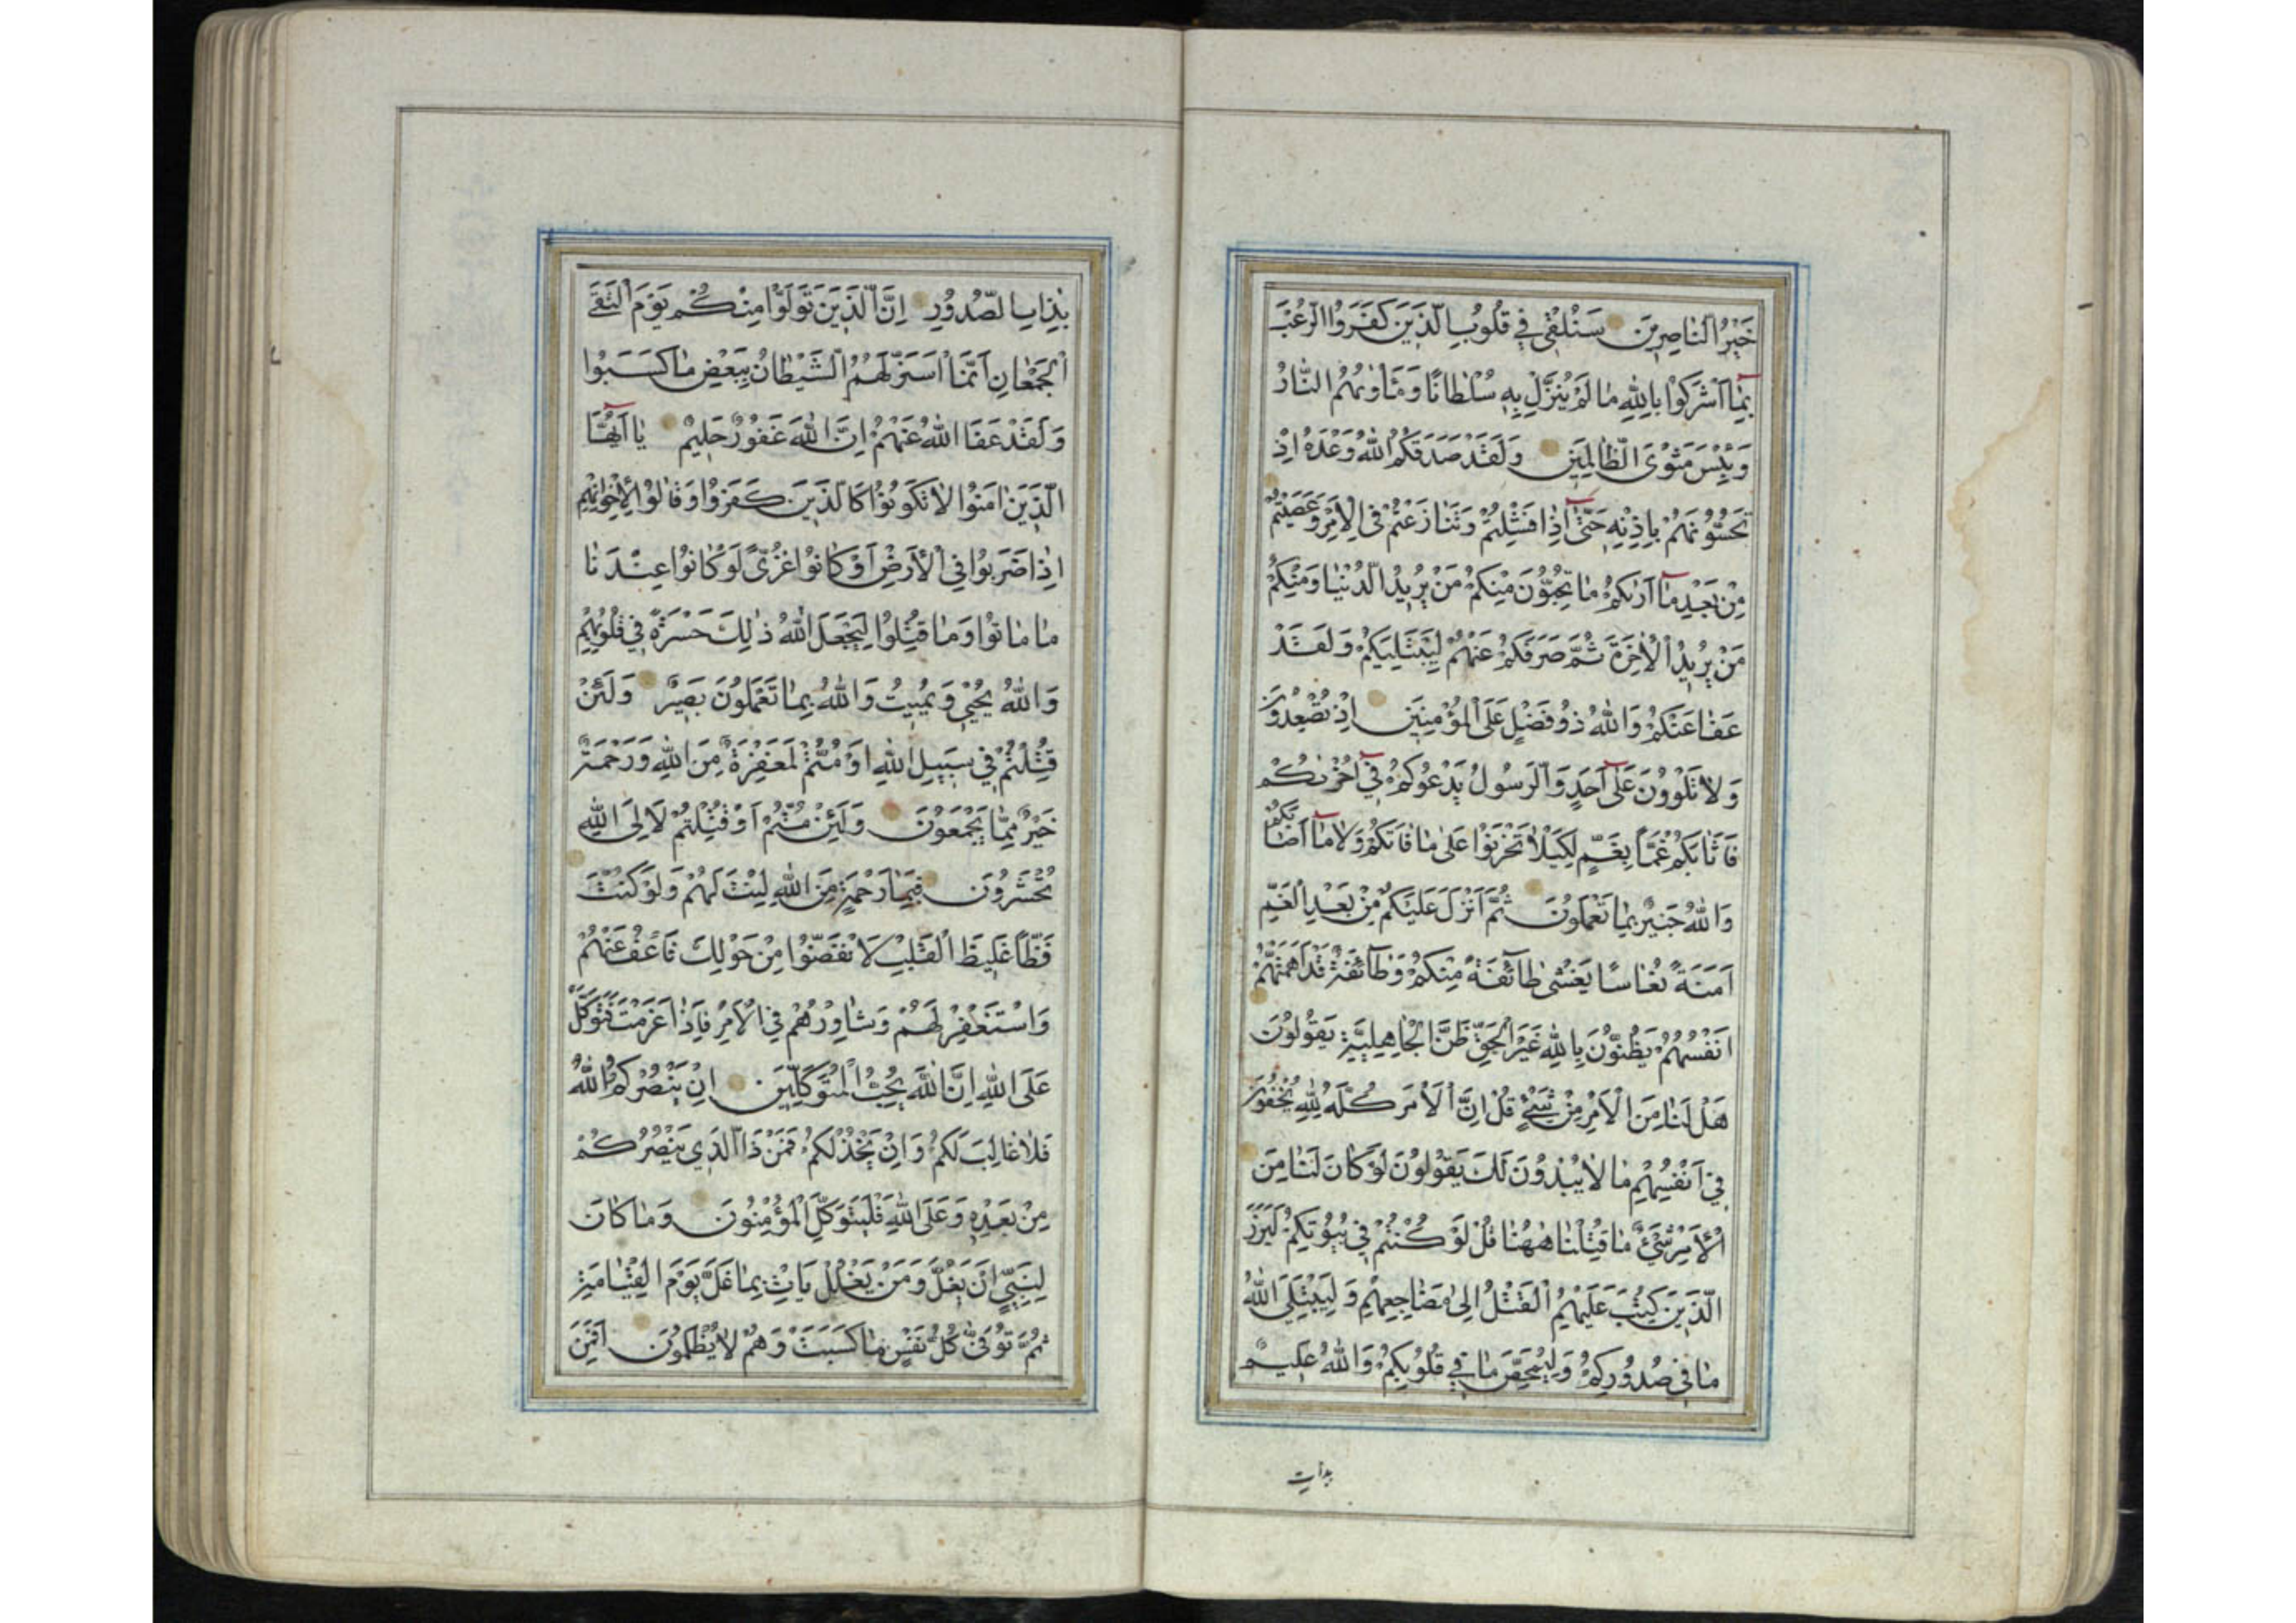 خَيْرُ النَّاصِرِينَ سَنُلْقِي فِي قُلُوبِ الَّذِينَ كَفَرُوا الرُّعْبَ
بِمَا أَشْرَكُوا بِاللهِ مَا لَمْ يُنَزِّلْ بِهِ سُلْطَانًا وَمَأْوٰيهُمُ النَّارُ
وَبِئْسَ مَثْوَى الظَّالِمِينَ وَلَقَدْ صَدَقَكُمُ اللهُ وَعْدَهُ اِذْ
تَحُسُّونَهُمْ بِاِذْنِهِ حَتَّى اِذَا فَشِلْتُمْ وَتَنَازَعْتُمْ فِي الْاَمْرِ وَعَصَيْتُمْ
مِنْ بَعْدِ مَا اَرٰيكُمْ مَا تُحِبُّونَ مِنْكُمْ مَنْ يُرِيدُ الدُّنْيَا وَمِنْكُمْ
مَنْ يُرِيدُ الْاٰخِرَةَ ثُمَّ صَرَفَكُمْ عَنْهُمْ لِيَبْتَلِيَكُمْ وَلَقَدْ
عَفَا عَنْكُمْ وَاللهُ ذُو فَضْلٍ عَلَى الْمُؤْمِنِينَ اِذْ تُصْعِدُونَ
وَلَا تَلْوُونَ عَلَى اَحَدٍ وَالرَّسُولُ يَدْعُوكُمْ فِي اُخْرٰيكُمْ
فَاَثَابَكُمْ غَمًّا بِغَمٍّ لِكَيْلَا تَحْزَنُوا عَلَى مَا فَاتَكُمْ وَلَا مَا اَصَابَكُمْ
وَاللهُ خَبِيرٌ بِمَا تَعْمَلُونَ ثُمَّ اَنْزَلَ عَلَيْكُمْ مِنْ بَعْدِ الْغَمِّ
اَمَنَةً نُعَاسًا يَغْشَى طَائِفَةً مِنْكُمْ وَطَائِفَةٌ قَدْ اَهَمَّتْهُمْ
اَنْفُسُهُمْ يَظُنُّونَ بِاللهِ غَيْرَ الْحَقِّ ظَنَّ الْجَاهِلِيَّةِ يَقُولُونَ
هَلْ لَنَا مِنَ الْاَمْرِ مِنْ شَيْءٍ قُلْ اِنَّ الْاَمْرَ كُلَّهُ لِلّٰهِ يُخْفُونَ
فِي اَنْفُسِهِمْ مَا لَا يُبْدُونَ لَكَ يَقُولُونَ لَوْ كَانَ لَنَا مِنَ
الْاَمْرِ شَيْءٌ مَا قُتِلْنَا هٰهُنَا قُلْ لَوْ كُنْتُمْ فِي بُيُوتِكُمْ لَبَرَزَ
الَّذِينَ كُتِبَ عَلَيْهِمُ الْقَتْلُ اِلَى مَضَاجِعِهِمْ وَلِيَبْتَلِيَ اللهُ
مَا فِي صُدُورِكُمْ وَلِيُمَحِّصَ مَا فِي قُلُوبِكُمْ وَاللهُ عَلِيمٌ
بذات
بِذَاتِ الصُّدُورِ اِنَّ الَّذِينَ تَوَلَّوْا مِنْكُمْ يَوْمَ الْتَقَى
الْجَمْعَانِ اِنَّمَا اسْتَزَلَّهُمُ الشَّيْطَانُ بِبَعْضِ مَا كَسَبُوا
وَلَقَدْ عَفَا اللهُ عَنْهُمْ اِنَّ اللهَ غَفُورٌ حَلِيمٌ يَا اَيُّهَا
الَّذِينَ اٰمَنُوا لَا تَكُونُوا كَالَّذِينَ كَفَرُوا وَقَالُوا لِاِخْوَانِهِمْ
اِذَا ضَرَبُوا فِي الْاَرْضِ اَوْ كَانُوا غُزًّى لَوْ كَانُوا عِنْدَنَا
مَا مَاتُوا وَمَا قُتِلُوا لِيَجْعَلَ اللهُ ذٰلِكَ حَسْرَةً فِي قُلُوبِهِمْ
وَاللهُ يُحْيِي وَيُمِيتُ وَاللهُ بِمَا تَعْمَلُونَ بَصِيرٌ وَلَئِنْ
قُتِلْتُمْ فِي سَبِيلِ اللهِ اَوْ مُتُّمْ لَمَغْفِرَةٌ مِنَ اللهِ وَرَحْمَةٌ
خَيْرٌ مِمَّا يَجْمَعُونَ وَلَئِنْ مُتُّمْ اَوْ قُتِلْتُمْ لَاِلَى اللهِ
تُحْشَرُونَ فَبِمَا رَحْمَةٍ مِنَ اللهِ لِنْتَ لَهُمْ وَلَوْ كُنْتَ
فَظًّا غَلِيظَ الْقَلْبِ لَانْفَضُّوا مِنْ حَوْلِكَ فَاعْفُ عَنْهُمْ
وَاسْتَغْفِرْ لَهُمْ وَشَاوِرْهُمْ فِي الْاَمْرِ فَاِذَا عَزَمْتَ فَتَوَكَّلْ
عَلَى اللهِ اِنَّ اللهَ يُحِبُّ الْمُتَوَكِّلِينَ اِنْ يَنْصُرْكُمُ اللهُ
فَلَا غَالِبَ لَكُمْ وَاِنْ يَخْذُلْكُمْ فَمَنْ ذَا الَّذِي يَنْصُرُكُمْ
مِنْ بَعْدِهِ وَعَلَى اللهِ فَلْيَتَوَكَّلِ الْمُؤْمِنُونَ وَمَا كَانَ
لِنَبِيٍّ اَنْ يَغُلَّ وَمَنْ يَغْلُلْ يَأْتِ بِمَا غَلَّ يَوْمَ الْقِيَامَةِ
ثُمَّ تُوَفَّى كُلُّ نَفْسٍ مَا كَسَبَتْ وَهُمْ لَا يُظْلَمُونَ اَفَمَنِ